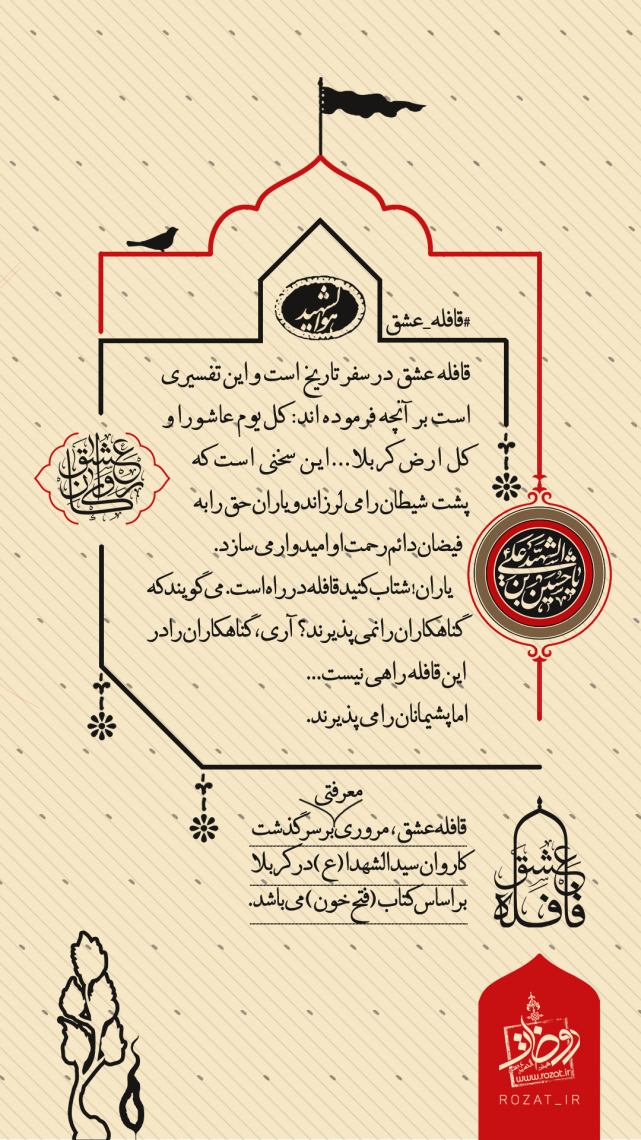 هوالشهید
#قافله_عشق
قافله عشق در سفر تاریخ است و این تفسیری
است بر آنچه فرموده اند: کل یوم عاشورا و
کل ارض کربلا... این سخنی است که
پشت شیطان را می لرزاند و یاران حق را به
فیضان دائم رحمت او امیدوار می سازد.
یاران؛ شتاب کنید قافله در راه است. می گویند که
گناهکاران را نمی پذیرند؟ آری، گناهکاران را در
این قافله راهی نیست...
اما پشیمانان را می پذیرند.
کاروان عشق
یا حسین بن علی الشهید
معرفتی
قافله عشق، مروری بر سرگذشت
کاروان سیدالشهدا (ع) در کربلا
براساس کتاب (فتح خون) می باشد.
قافله عشق
روضات
www.rozat.ir
ROZAT_IR